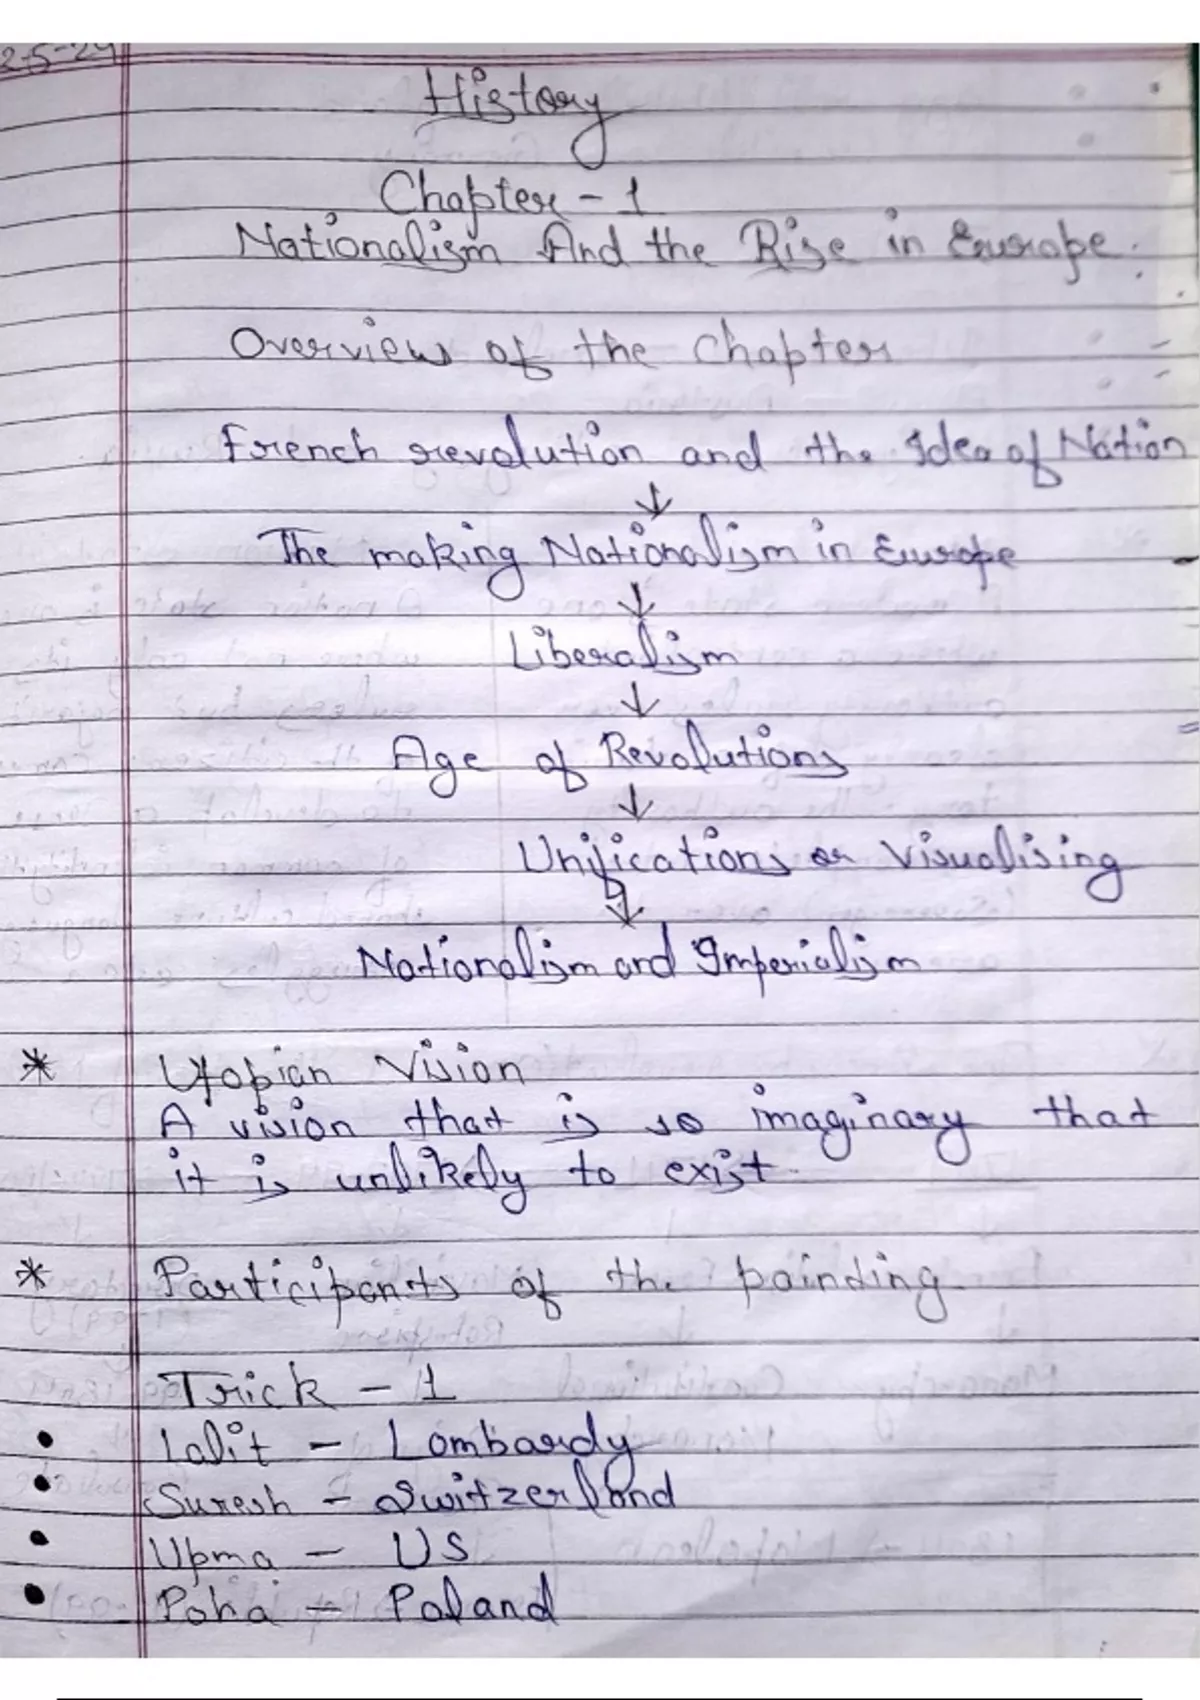 2-5-24
History
Chapter - 1
Nationalism And the Rise in Europe.
Overview of the Chapter
French revolution and the Idea of Nation
↓
The making Nationalism in Europe
↓
Liberalism
↓
Age of Revolutions
↓
Unifications or Visualising
↓
Nationalism and Imperialism
* Utopian Vision
A vision that is so imaginary that
it is unlikely to exist.
* Participants of the painding
Trick - 1
• Lalit - Lombardy
• Suresh - Switzerland
• Upma - US
• Poha - Poland